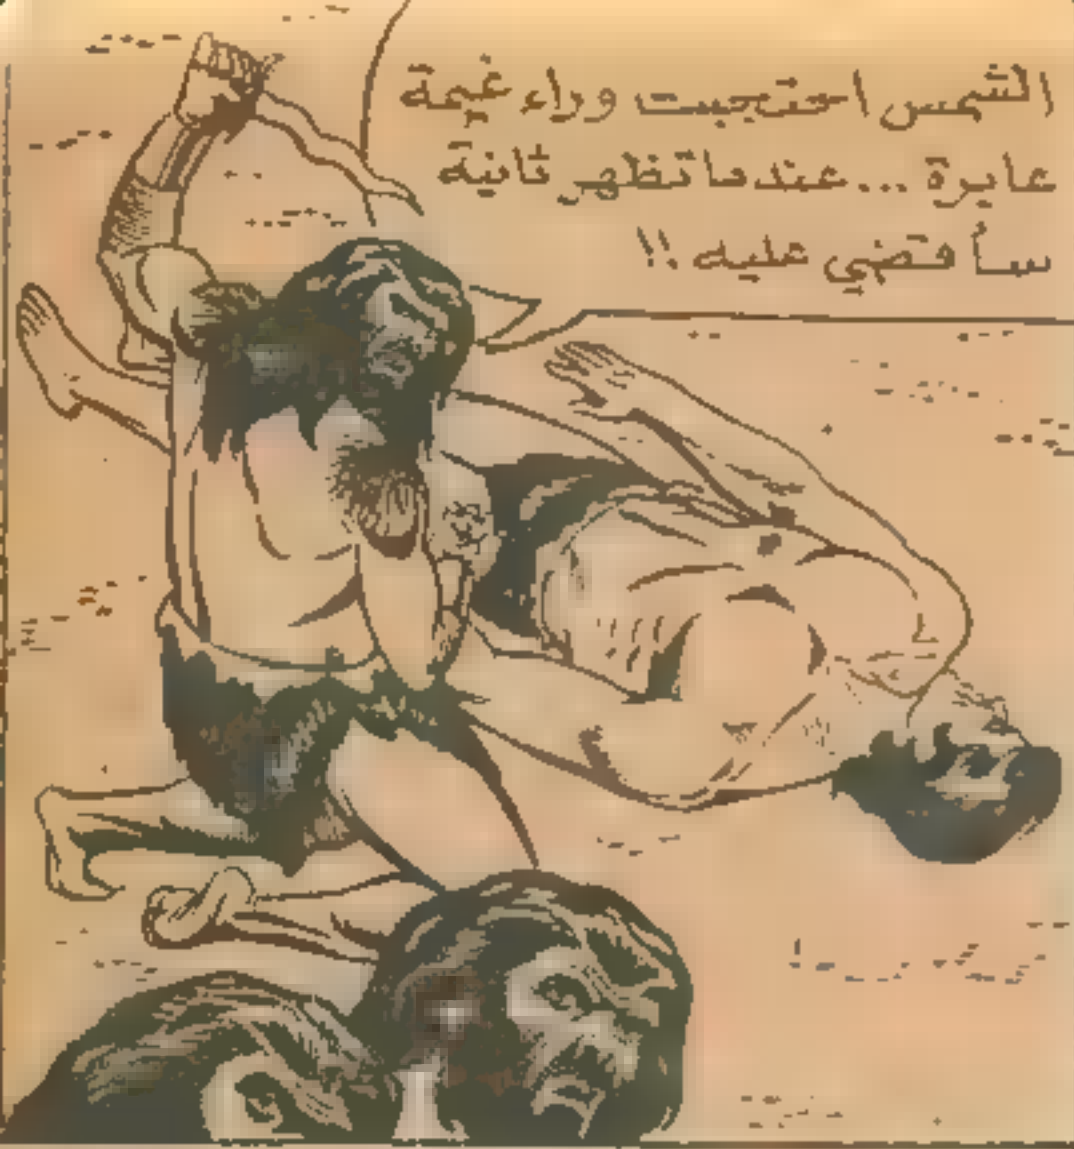 الشمس احتجبت وراء غيمة
عابرة ... عندما تظهر ثانية
سأقضي عليه !!